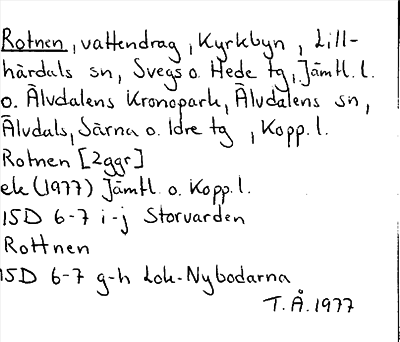 Rotnen, vattendrag, Kyrkbyn, Lill-
härdals sn, Svegs o. Hede tg, Jämtl. l.
o. Älvdalens Kronopark, Älvdalens sn,
Älvdals, Särna o. Idre tg, Kopp. l.
Rotnen [2ggr]
ek (1977) Jämtl. o. Kopp. l.
15D 6-7 i-j Storvarden
Rottnen
15D 6-7 g-h Lok-Nybodarna
T.Å. 1977